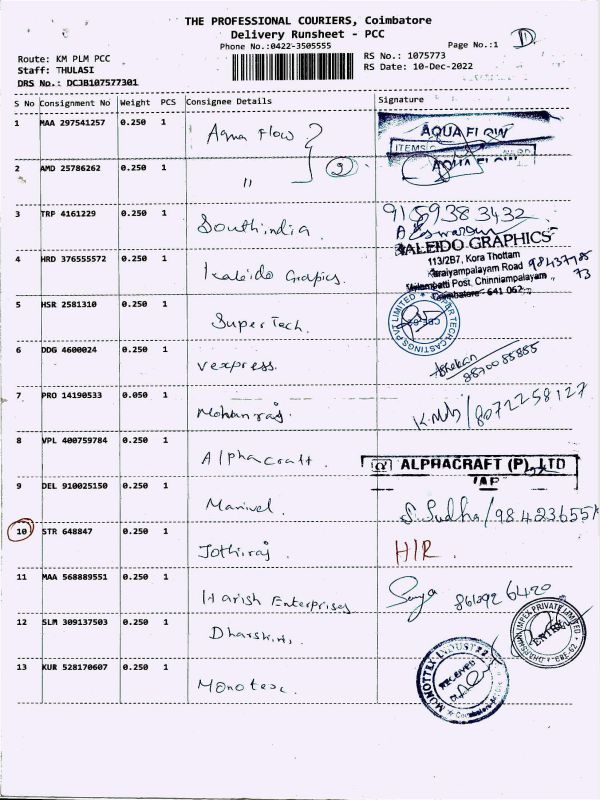 THE PROFESSIONAL COURIERS, Coimbatore
Delivery Runsheet - PCC
Phone No.:0422-3505555
Page No.:1 1
Route: KM PLM PCC
RS No.: 1075773
Staff: THULASI
RS Date: 10-Dec-2022
DRS No.: DCJB107577301
S No Consignment No Weight PCS Consignee Details Signature
1 MAA 297541257 0.250 1 Aqua Flow AQUA FLOW
2 AMD 25786262 0.250 1 " AQUA
3 TRP 4161229 0.250 1 Southindia 9159383432
4 HRD 376555572 0.250 1 Kaleido Grapics. KALEIDO GRAPHICS
113/2B7, Kora Thottam
Karaiyampalayam Road
Post, Chinniampalayam
Coimbatore - 641 062
5 HSR 2581310 0.250 1 Super Tech. SUPER TECH CASTINGS PVT LIMITED
6 DDG 4600024 0.250 1 vexpress. Ashokan
8870085855
7 PRO 14190533 0.050 1 Mohanraj. 8072258127
8 VPL 400759784 0.250 1 Alphacraft. ALPHACRAFT (P) LTD
9 DEL 910025150 0.250 1 Manivel S. Sudha
10 STR 648847 0.250 1 Jothiraj. HIR.
11 MAA 568889551 0.250 1 Harish Enterprises
12 SLM 309137503 0.250 1 IMPEX PRIVATE LIMITED
13 KUR 528170607 0.250 1 RECEIVED